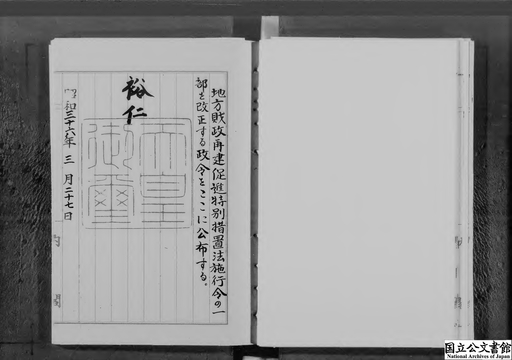 地方財政再建促進特別措置法施行令の一
部を改正する政令をここに公布する。
裕仁
天皇
御璽
昭和三十六年三月二十七日
国立公文書館
National Archives of Japan